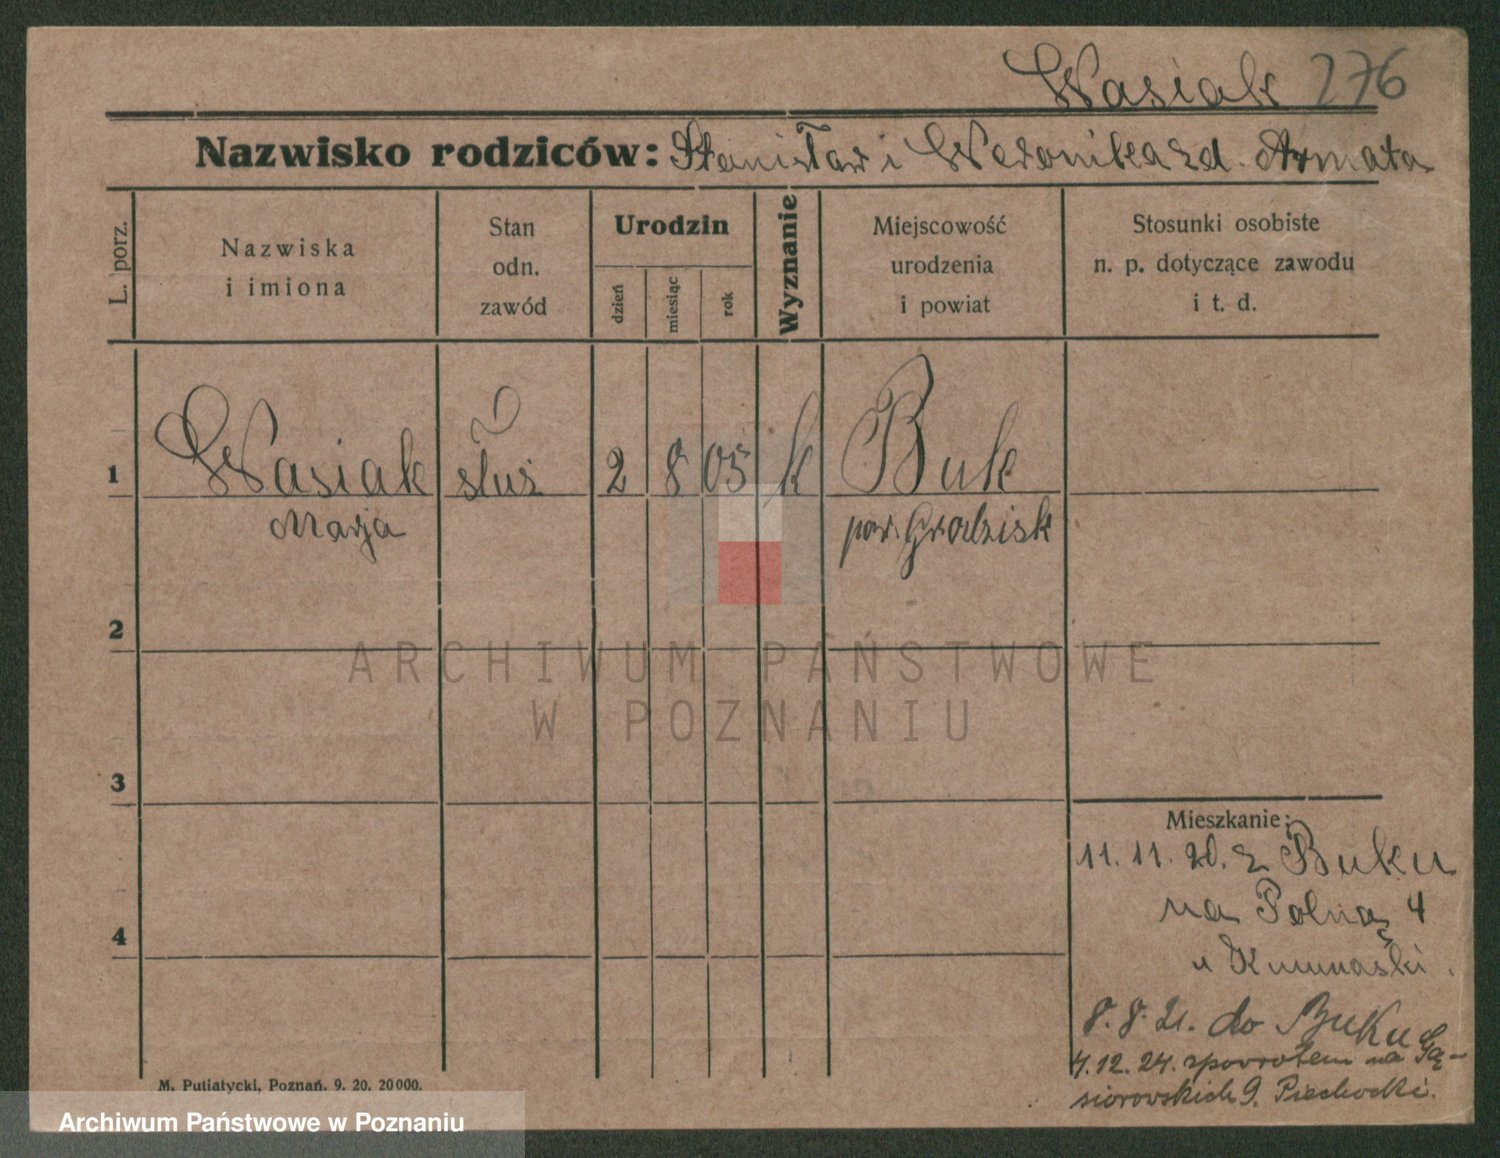 Wasiak 276
Nazwisko rodziców: Stanisław i Weronika zd. Armata
L. porz.
Nazwiska
i imiona
Stan
odn.
zawód
Urodzin
dzień
miesiąc
rok
Wyznanie
Miejscowość
urodzenia
i powiat
Stosunki osobiste
n. p. dotyczące zawodu
i t. d.
1 Wasiak służ 2 8 05 k Buk
Marja pow. Grodzisk
2
3
4
Mieszkanie:
11. 11. 20. z Buku
na Polną 4
u
8. 8. 21. do Buku
4.12. 24. zpowrotem na Gą-
siorowskich 9. Piechocki.
M. Putiatycki, Poznań. 9. 20. 20000.
ARCHIWUM PAŃSTWOWE
W POZNANIU
Archiwum Państwowe w Poznaniu